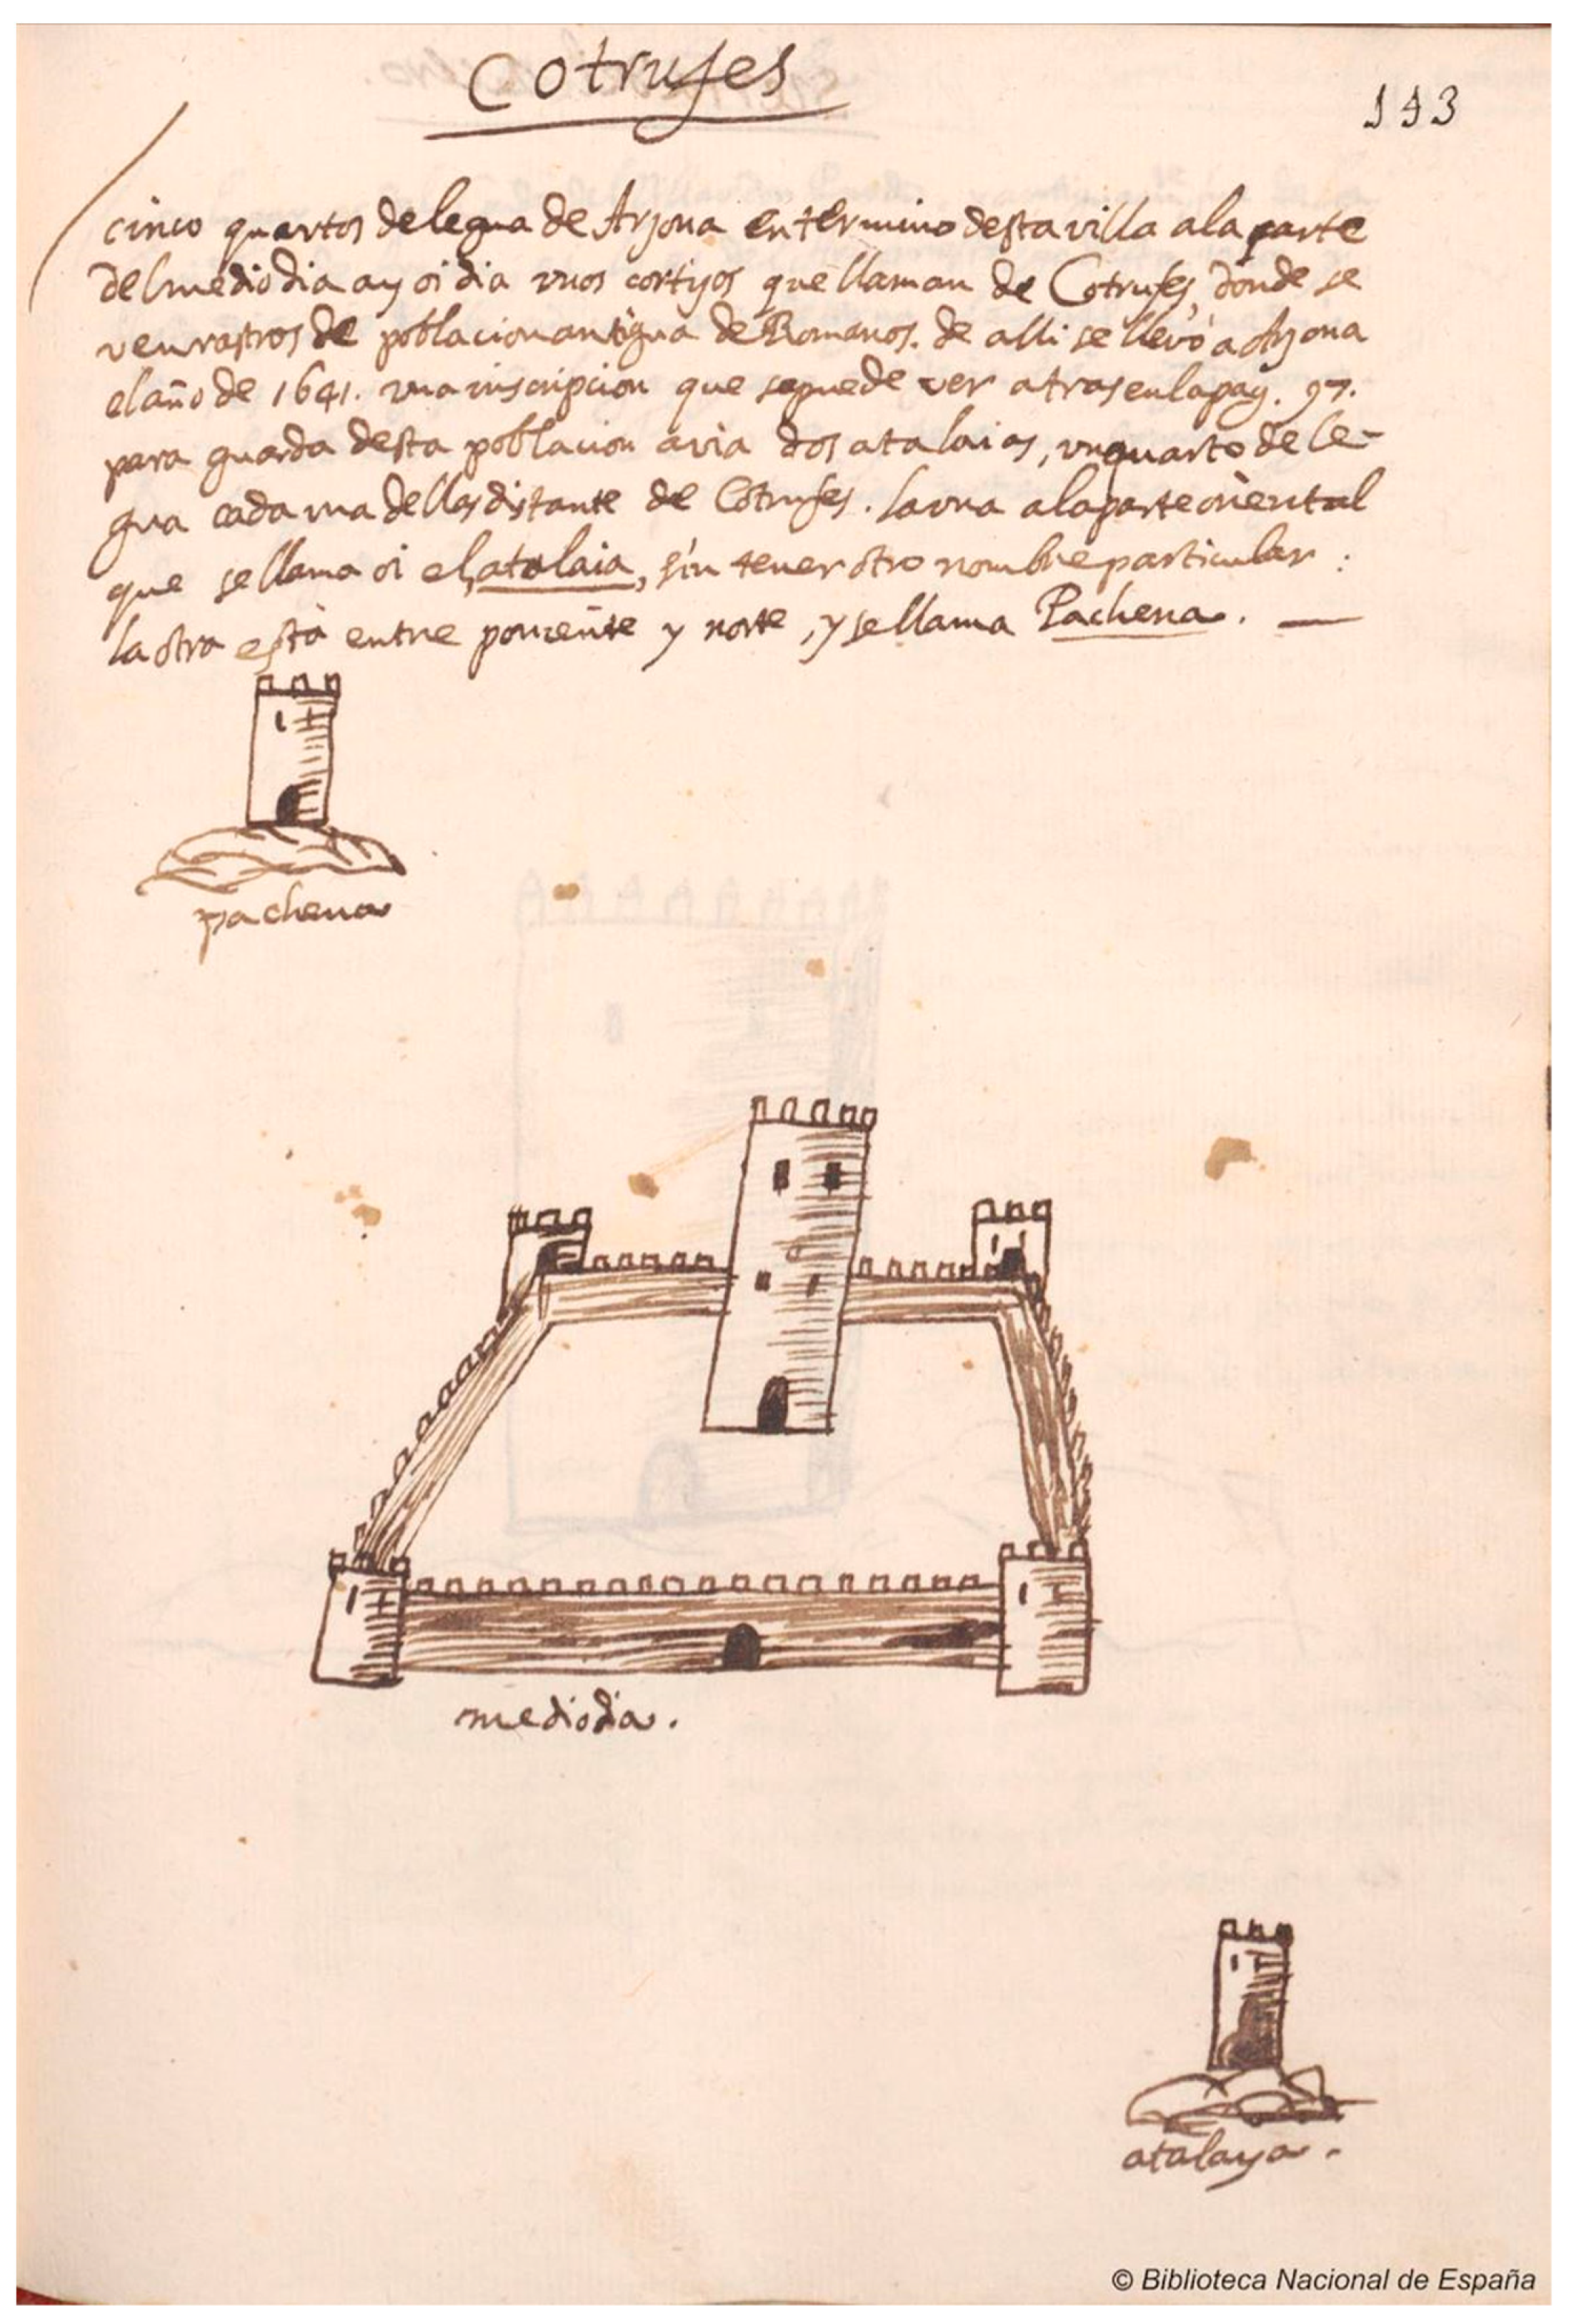 Cotrufes
193
cinco quartos de legua de Arjona en termino desta villa a la parte
del mediodia ay oi dia vnos cortijos que llaman de Cotrufes, donde se
ven rastros de poblacion antigua de Romanos. de alli se llevò a Arjona
el año de 1641. vna inscripcion que se puede ver atras en la pag. 97.
para guarda desta poblacion avia dos atalaias, vn quarto de le-
gua cada vna dellas distante de Cotrufes. la vna a la parte oriental
que se llama oi el atalaia, sin tener otro nombre particular:
la otra està entre poniente y norte, y se llama Pachena. —
pachena
mediodia.
atalaya.
© Biblioteca Nacional de España